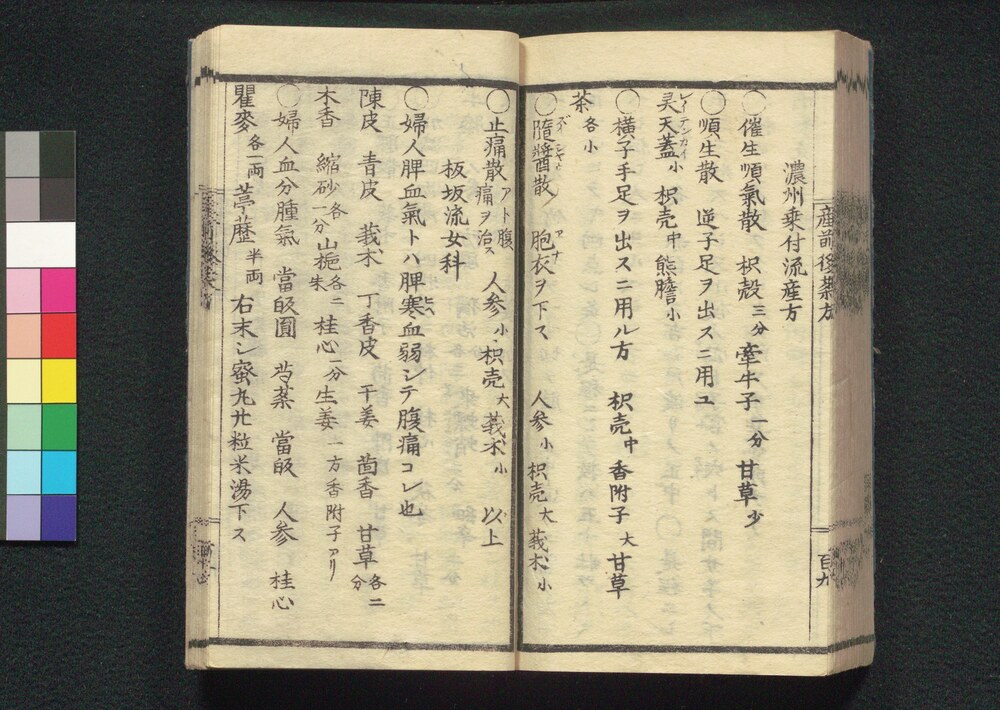 産前後薬方
百九
濃州乗付流産方
○催生順氣散 枳殻三分 牽牛子一分 甘草少
○順生散 逆子足ヲ出スニ用ユ
灵天蓋小 枳壳中 熊膽小
○横子手足ヲ出スニ用ル方 枳壳中 香附子大 甘草
茶各小
○隨醬散 胞衣ヲ下ス 人参小 枳壳大 莪朮小
○止痛散アト腹痛ヲ治ス 人参小 枳壳大 莪朮小 以上
板坂流女科
○婦人脾血氣トハ脾寒血弱シテ腹痛コレ也
陳皮 青皮 莪朮 丁香皮 干姜 茴香 甘草各二分
木香 縮砂各一分 山梔各二朱 桂心一分 生姜一方香附子アリ
○婦人血分腫氣 當皈圓 芍薬 當皈 人参 桂心
瞿麥各一両 葶藶半両 右末シ蜜丸廿粒米湯下ス